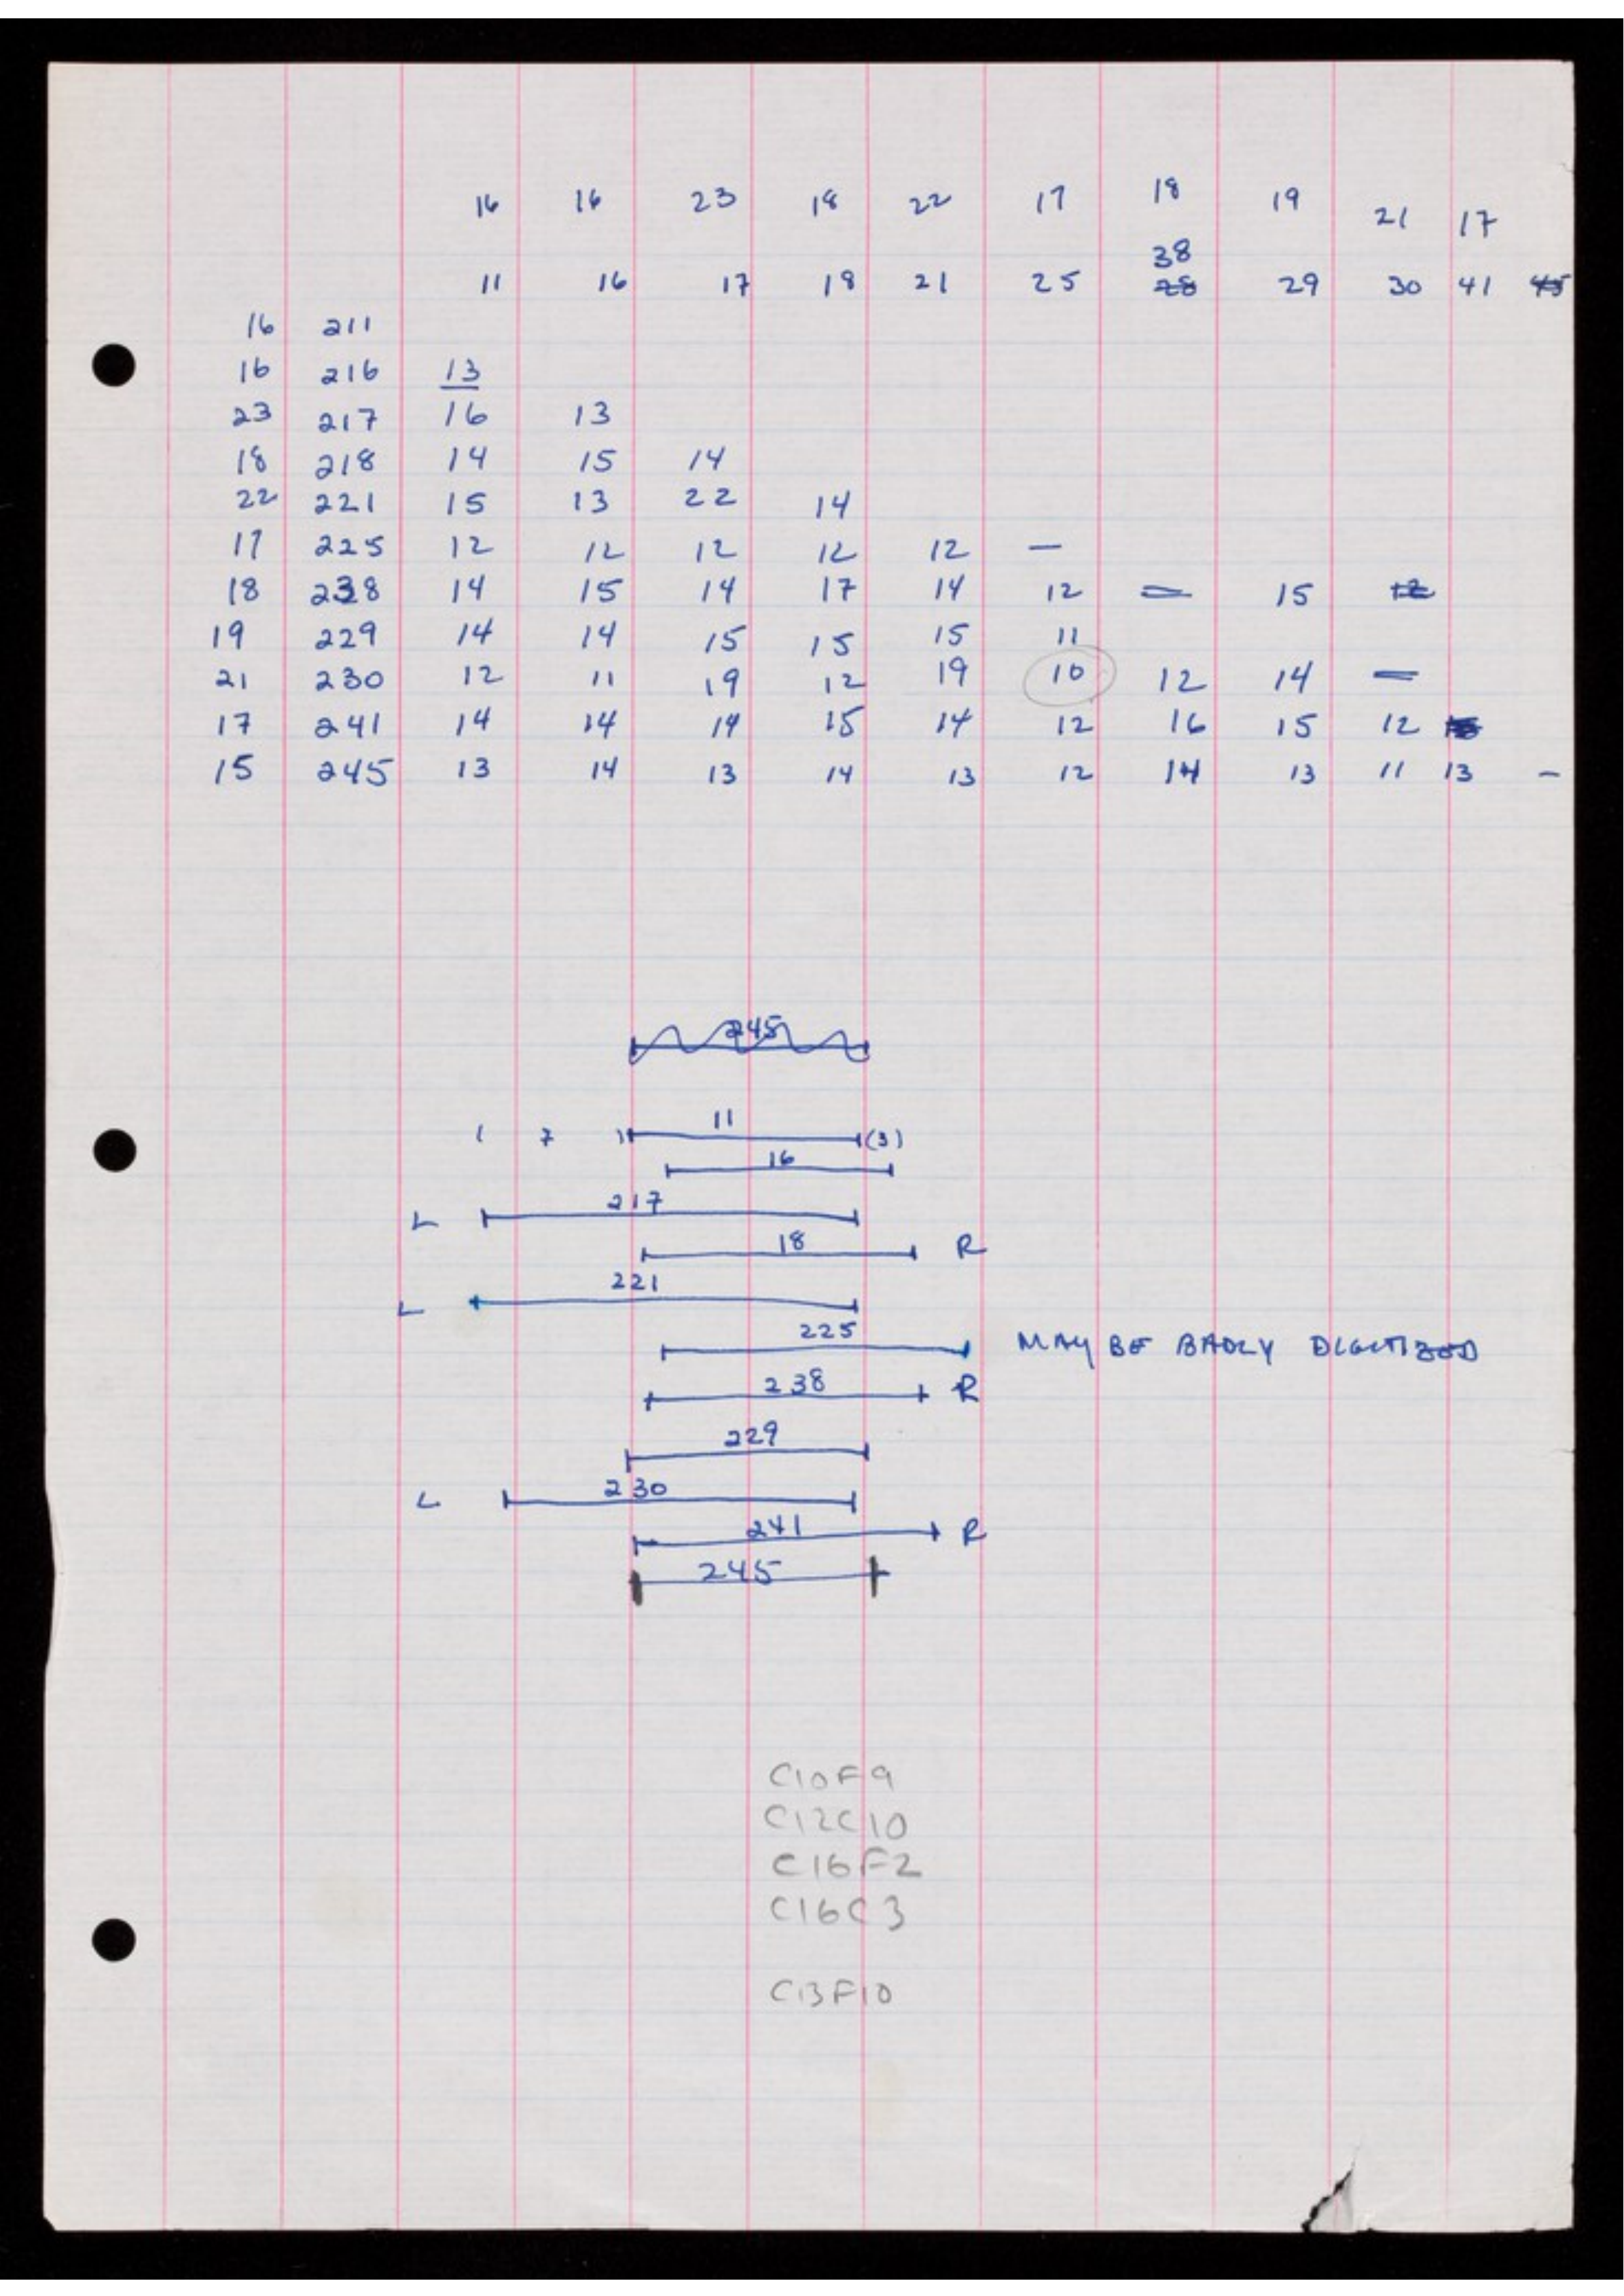 16 16 23 18 22 17 18 19 21 17
38
11 16 17 18 21 25 28 29 30 41 45
16 211
16 216 13
23 217 16 13
18 218 14 15 14
22 221 15 13 22 14
17 225 12 12 12 12 12 —
18 238 14 15 14 17 14 12 — 15 12
19 229 14 14 15 15 15 11
21 230 12 11 19 12 19 10 12 14 —
17 241 14 14 14 15 14 12 16 15 12
15 245 13 14 13 14 13 12 14 13 11 13 -
245
( 7 ) 11 (3)
16
L 217
18 R
L 221
225 MAY BE BADLY DIGITIZED
238 R
229
L 230
241 R
245
C10F9
C12C10
C16F2
C16C3
C13F10